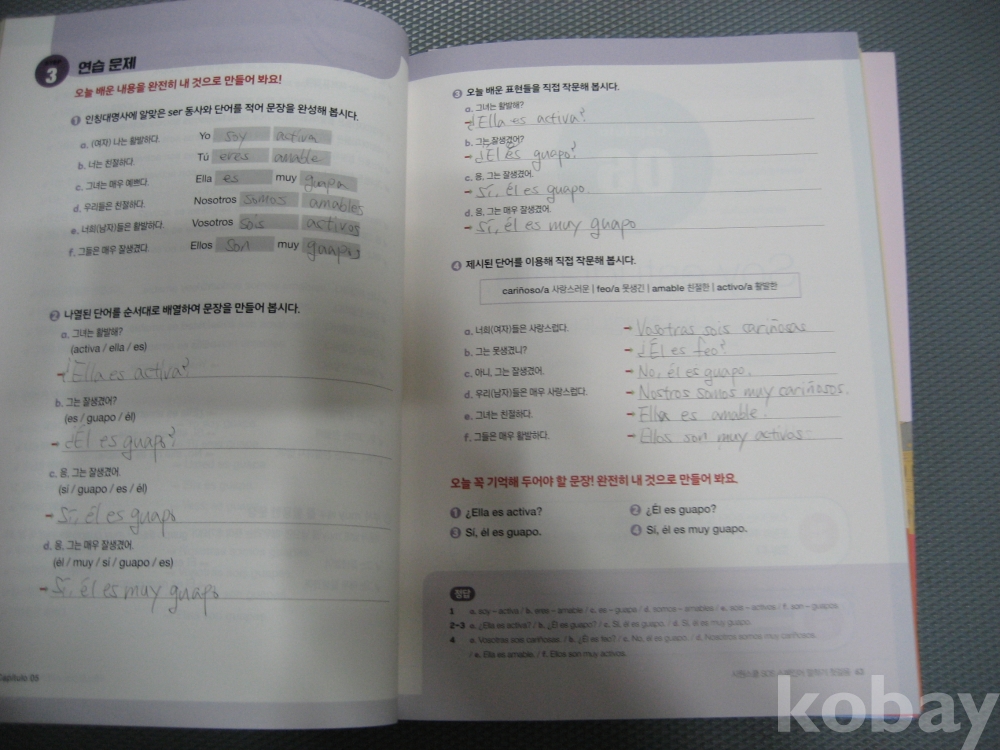 3 연습 문제
오늘 배운 내용을 완전히 내 것으로 만들어 봐요!
1 인칭대명사에 알맞은 ser 동사와 단어를 적어 문장을 완성해 봅시다.
a. (여자) 나는 활발하다. Yo soy activa
b. 너는 친절하다. Tú eres amable
c. 그녀는 매우 예쁘다. Ella es muy guapa
d. 우리들은 친절하다. Nosotros somos amables
e. 너희(남자)들은 활발하다. Vosotros sois activos
f. 그들은 매우 잘생겼다. Ellos son muy guapos
2 나열된 단어를 순서대로 배열하여 문장을 만들어 봅시다.
a. 그녀는 활발해?
(activa / ella / es)
→ ¿Ella es activa?
b. 그는 잘생겼어?
(es / guapo / él)
→ ¿Él es guapo?
c. 응, 그는 잘생겼어.
(sí / guapo / es / él)
→ Sí, él es guapo
d. 응, 그는 매우 잘생겼어.
(él / muy / sí / guapo / es)
→ Sí, él es muy guapo
Capítulo 05
3 오늘 배운 표현들을 직접 작문해 봅시다.
a. 그녀는 활발해?
→ ¿Ella es activa?
b. 그는 잘생겼어?
→ ¿Él es guapo?
c. 응, 그는 잘생겼어.
→ Sí, él es guapo.
d. 응, 그는 매우 잘생겼어.
→ Sí, él es muy guapo
4 제시된 단어를 이용해 직접 작문해 봅시다.
cariñoso/a 사랑스러운 | feo/a 못생긴 | amable 친절한 | activo/a 활발한
a. 너희(여자)들은 사랑스럽다. → Vosotras sois cariñosas
b. 그는 못생겼니? → ¿Él es feo?
c. 아니, 그는 잘생겼어. → No, él es guapo.
d. 우리(남자)들은 매우 사랑스럽다. → Nostros somos muy cariñosos.
e. 그녀는 친절하다. → Ella es amable.
f. 그들은 매우 활발하다. → Ellos son muy activos.
오늘 꼭 기억해 두어야 할 문장! 완전히 내 것으로 만들어 봐요.
1 ¿Ella es activa? 2 ¿Él es guapo?
3 Sí, él es guapo. 4 Sí, él es muy guapo.
정답
1 a. soy – activa / b. eres – amable / c. es – guapa / d. somos – amables / e. sois – activos / f. son – guapos
2-3 a. ¿Ella es activa? / b. ¿Él es guapo? / c. Sí, él es guapo. / d. Sí, él es muy guapo.
4 a. Vosotras sois cariñosas. / b. ¿Él es feo? / c. No, él es guapo. / d. Nosotros somos muy cariñosos.
/ e. Ella es amable. / f. Ellos son muy activos.
43
kobay